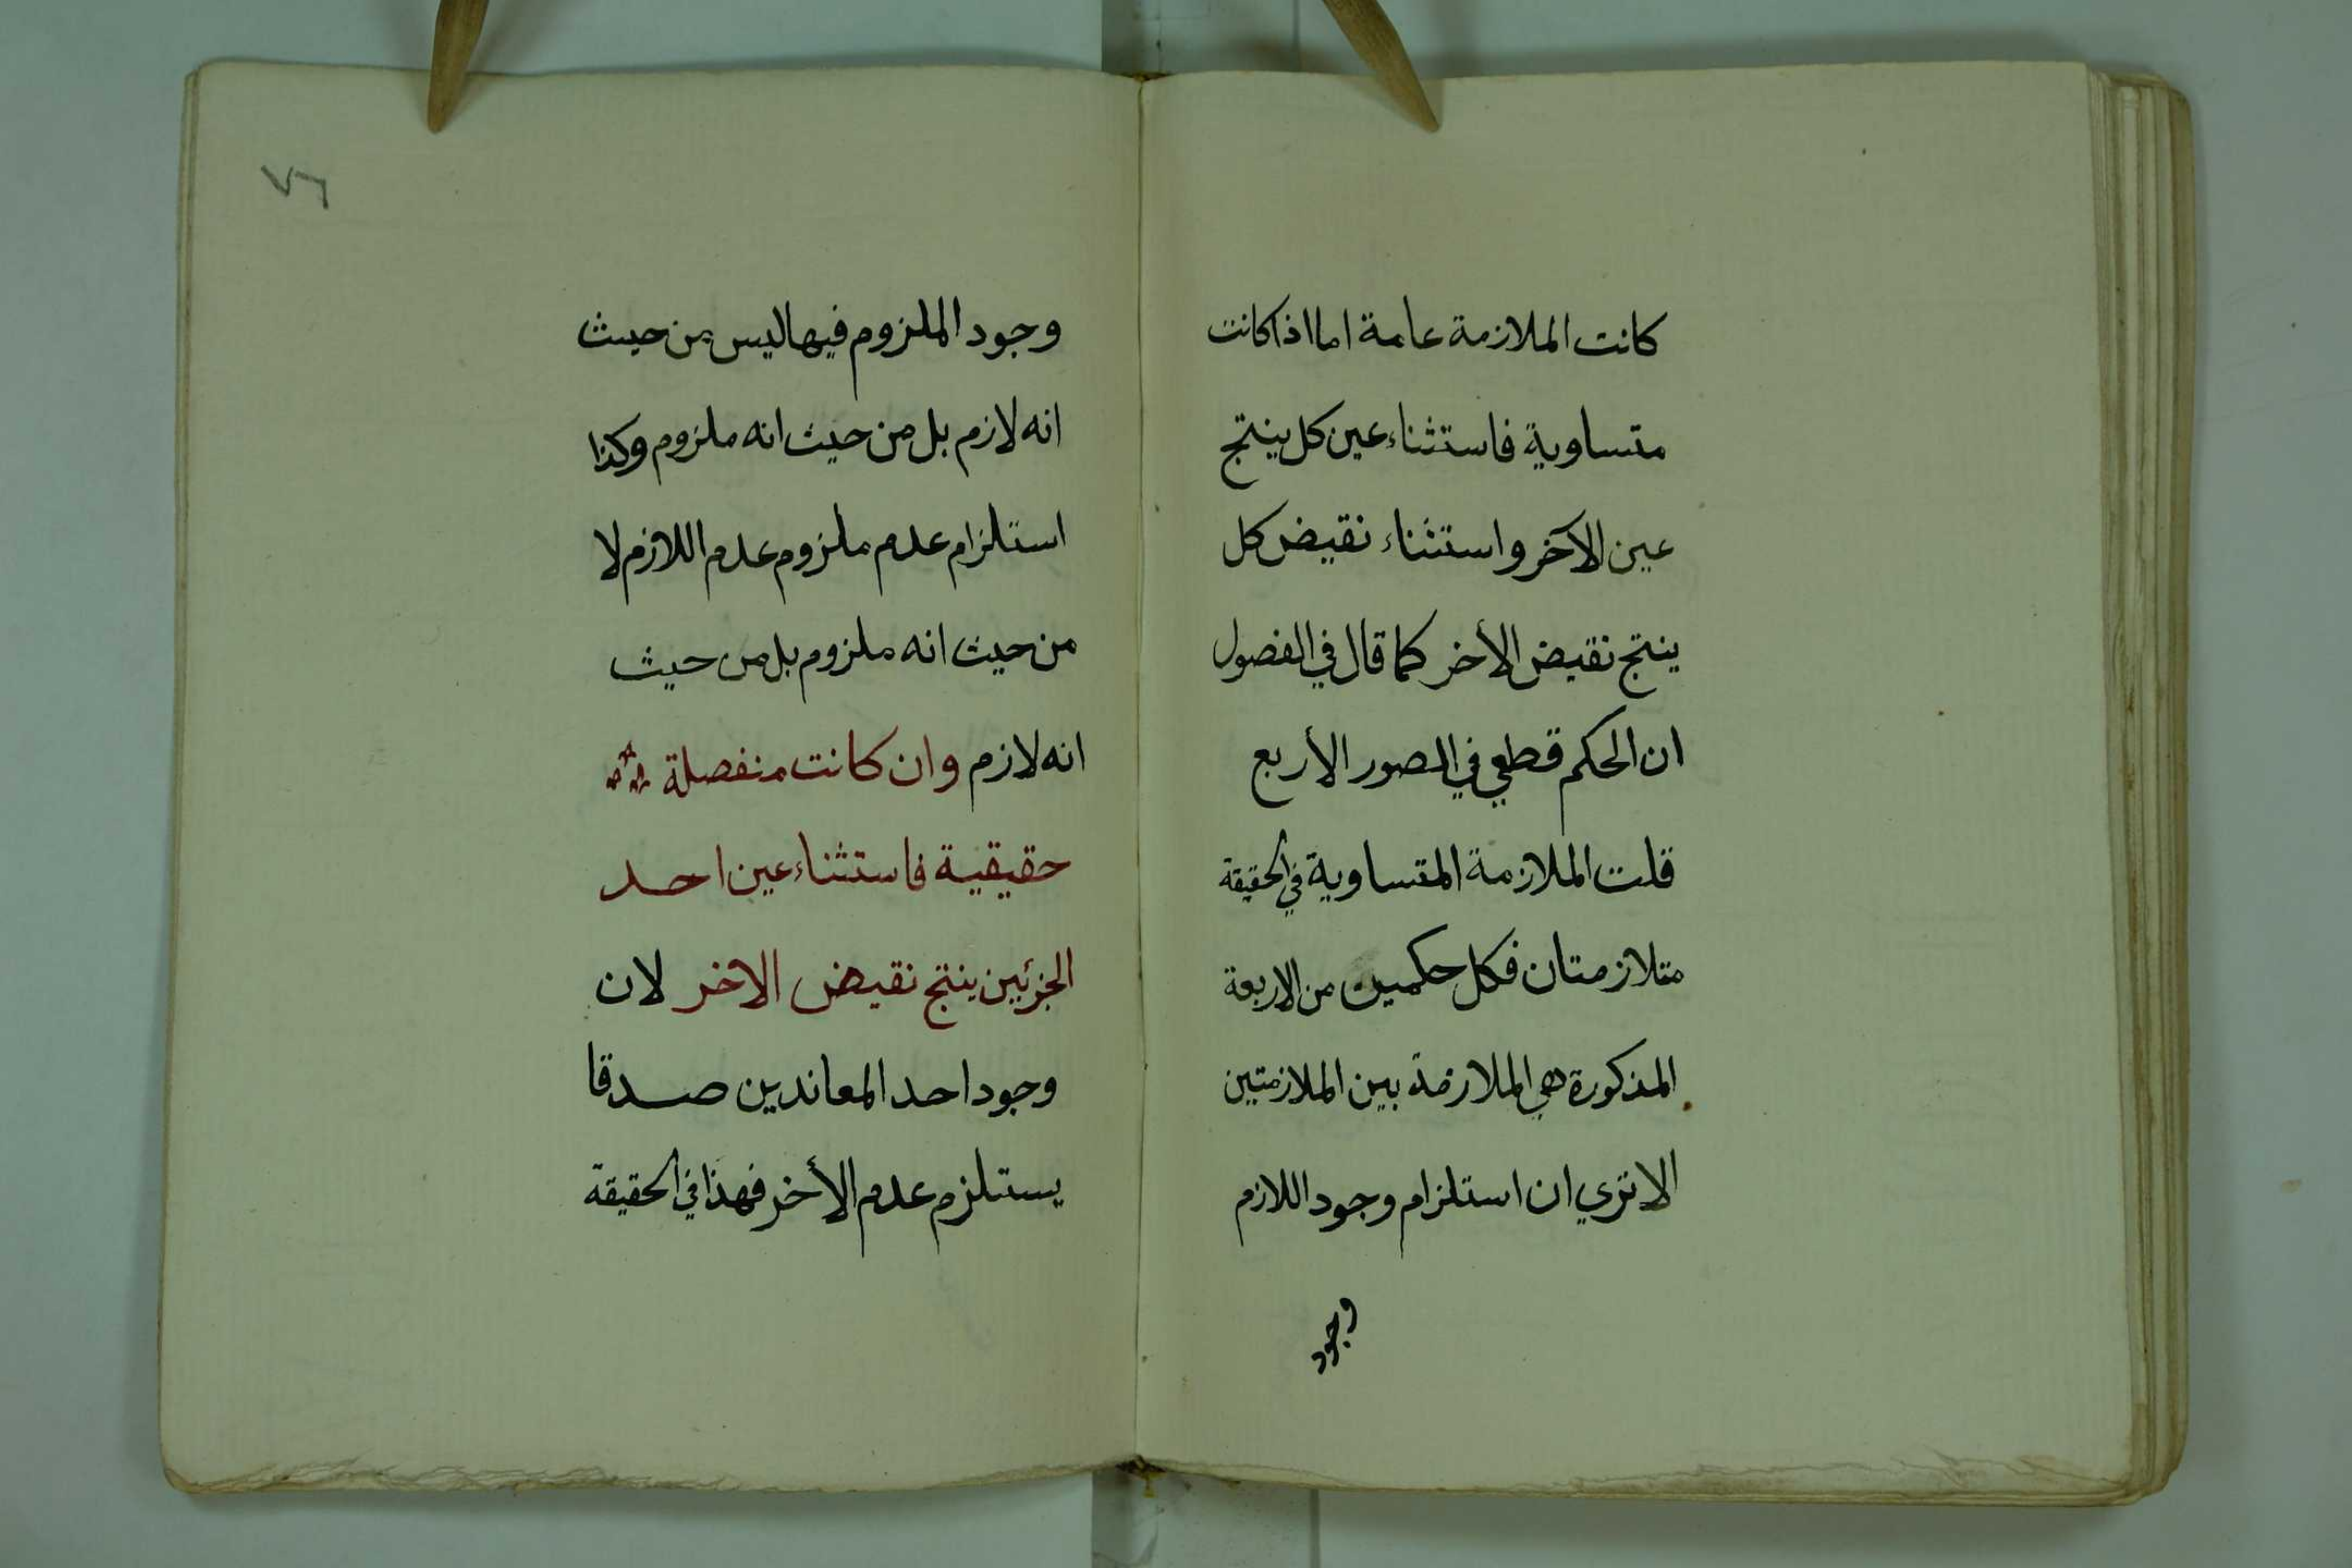 كانت الملازمة عامة اما اذا كانت
متساوية فاستثناء عين كل ينتج
عين الآخر واستثناء نقيض كل
ينتج نقيض الأخر كما قال في الفصول
ان الحكم قطعي في الصور الأربع
قلت الملازمة المتساوية في الحقيقة
متلازمتان فكل حكمين من الاربعة
المذكورة هي الملازمة بين الملازمتين
الا تري ان استلزام وجود اللازم
وجود
٧٦
وجود الملزوم فيها ليس من حيث
انه لازم بل من حيث انه ملزوم وكذا
استلزام عدم ملزوم عدم اللازم لا
من حيث انه ملزوم بل من حيث
انه لازم وان كانت منفصلة
حقيقية فاستثناء عين احد
الجزئين ينتج نقيض الاخر لان
وجود احد المعاندين صدقا
يستلزم عدم الأخر فهذا في الحقيقة